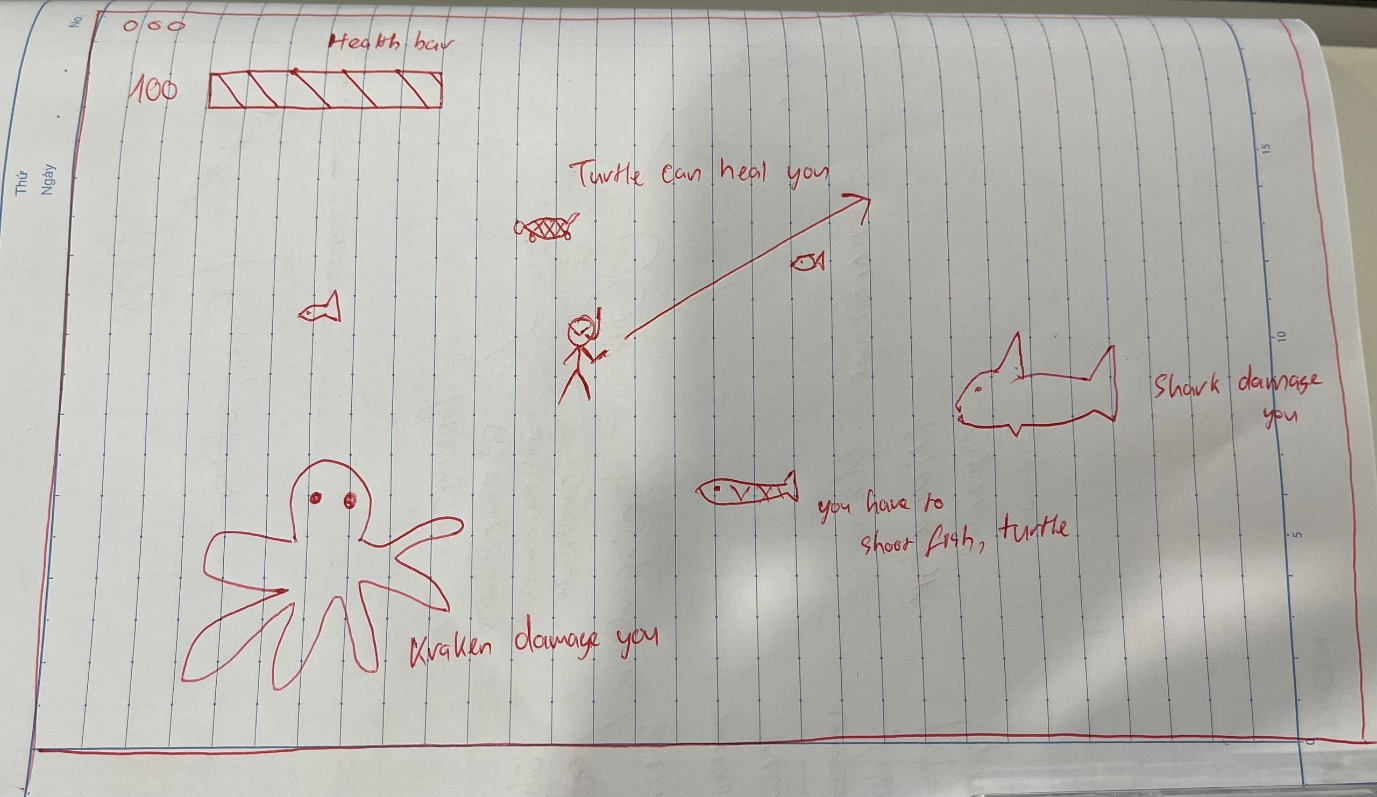 No.
Thứ
Ngày
000
Health bar
100
Turtle can heal you
Shark damage
you
you have to
shoot fish, turtle
Kraken damage you
15
10
5
0